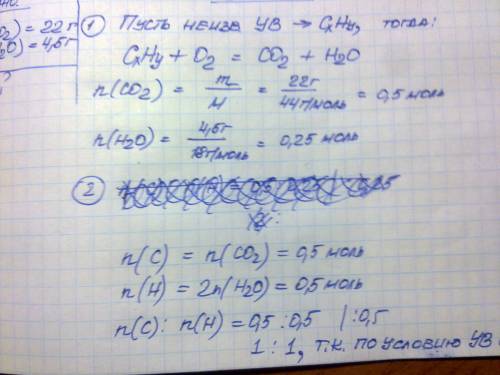 O₂) = 22 г
H₂O) = 4,5г
① Пусть неизв УВ → CxHy, тогда:
CxHy + O₂ = CO₂ + H₂O
n(CO₂) = m/M = 22г/44г/моль = 0,5 моль
n(H₂O) = 4,5г/18г/моль = 0,25 моль
②
n(C) = n(CO₂) = 0,5 моль
n(H) = 2n(H₂O) = 0,5 моль
n(C) : n(H) = 0,5 : 0,5 | : 0,5
1 : 1, т.к. по условию УВ